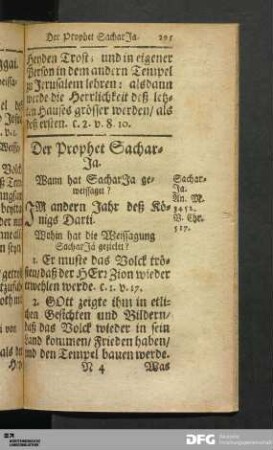 Der Prophet SacharJa. 295
Heyden Trost; und in eigener
Person in dem andern Tempel
zu Jerusalem lehren: alsdann
werde die Herrlichkeit deß letz-
ten Hauses grösser werden/ als
deß ersten. c. 2. v. 8. 10.
Der Prophet Sachar-
Ja.
Wann hat SacharJa ge-
weissagt?
IM andern Jahr deß Kö-
nigs Darii.
Sachar-
Ja.
An. M.
3452.
V. Chr.
517.
Wohin hat die Weissagung
SacharJä gezielet?
1. Er muste das Volck trö-
sten/ daß der HErr Zion wieder
erwehlen werde. c. 1. v. 17.
2. GOtt zeigte ihm in etli-
chen Gesichten und Bildern/
daß das Volck wieder in sein
Land kommen/ Frieden haben/
und den Tempel bauen werde.
N 4 Was
DFG